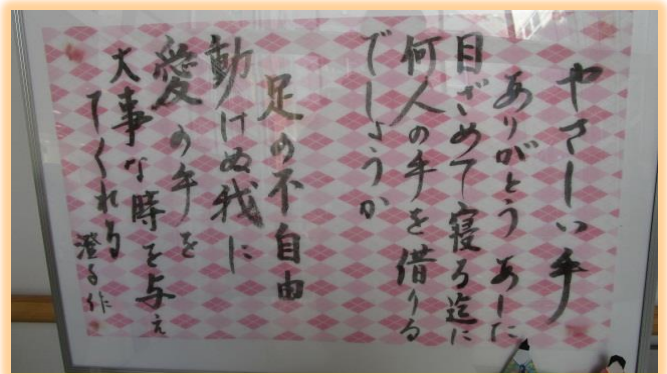 やさしい手
ありがとう あした
目ざめて寝る迄に
何人の手を借りる
でしょうか
足の不自由
動けぬ我に
愛の手を
大事な時を与え
てくれる
澄子作